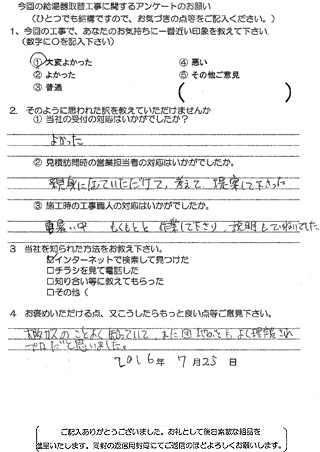 今回の給湯器取替工事に関するアンケートのお願い
（ひとつでも結構ですので、お気づきの点等をご記入ください。）
1、今回の工事で、あなたのお気持ちに一番近い印象を教えて下さい。
（数字に○を記入下さい）
① 大変よかった ④ 悪い
② よかった ⑤ その他ご意見
③ 普通 （ ）
2. そのように思われた訳を教えていただけませんか
① 当社の受付の対応はいかがでしたか？
よかった
② 見積訪問時の営業担当者の対応はいかがでしたか。
親身になっていただけて、考えて、提案して下さった
③ 施工時の工事職人の対応はいかがでしたか。
暑い中 もくもくと 作業して下さり、説明もていねいでした。
3 当社を知られた方法をお教え下さい。
☑インターネットで検索して見つけた
□チラシを見て電話した
□知り合い等に教えてもらった
□その他（
4 お褒めいただける点、又こうしたらもっと良い点等ご意見下さい。
大阪ガスのことよく知っていて、また団地のこともよく理解され
プロだと思いました。
2016年 7月25日
ご記入ありがとうございました。お礼として後日素敵な粗品を
進呈いたします。同封の返信用封筒にてご返信のほどよろしくお願いします。